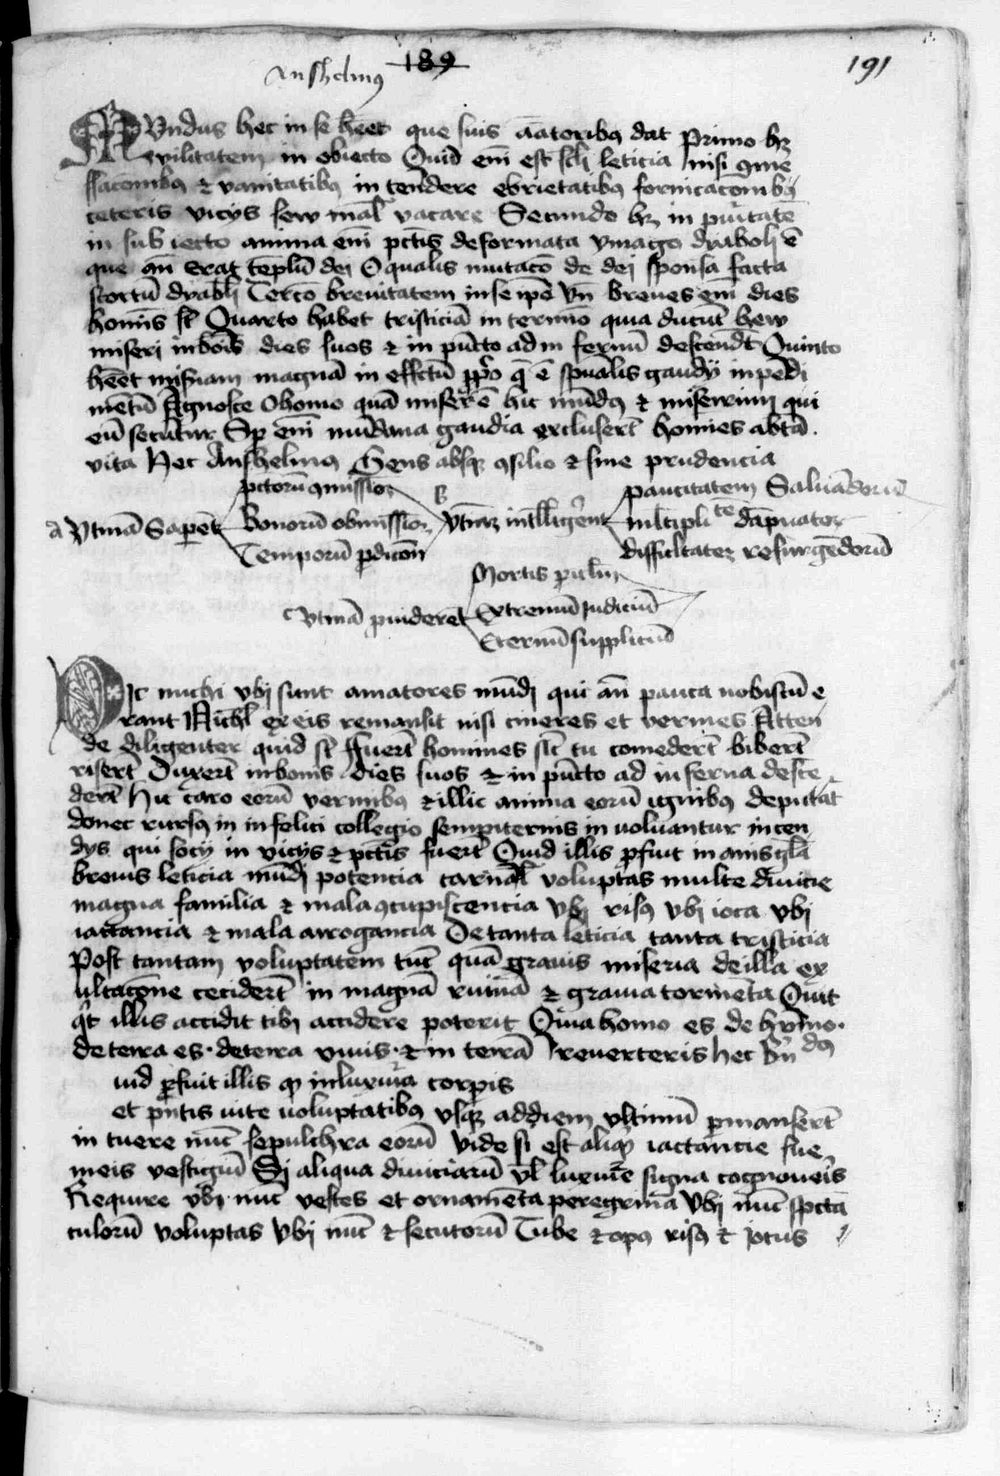 189
191
Anshelmus
MUndus hec in se heet que suis amatoribus dat Primo hz
vilitatem in obiecto Quid em est scli leticia nisi come
ssacombus et vanitatibus intendere ebrietatibus fornicacombus
ceteris vicys sew mal vacare Secundo hz inpuritate
in subiecto anima em pctis deformata ymago dyaboli e
que an erat templu dei O qualis mutaco de dei sponsa facta
scortu dyaboli Tercio breuitatem in se ipo Un breues em dies
homis st Quarto habet tristicia in termino quia ducut hew
miseri in bois dies suos et in puncto ad infernu descendut Quinto
heet miseriam magna in effctu ppo q e spualis gaudy inpedi
mentu Agnosce O homo qua miser e hic mundus et miserimi qui
eu secuntur Sp em mundana gaudia exclusert homies ab eta
vita Hec Anshelmus Gens absqz consilio et sine prudencia
pctoru comissioz
a Utina Saperet Bonoru obmissioz
Temporu pdicon
B Utinaz intelligeret
paucitatem Saluandoru
multiplicitate dampnatoz
difficultatez resurgendoru
Mortis periclm
Utina puideret Extremu Judiciu
Eternu suppliciu
DIc michi vbi sunt amatores mundi qui an pauca nobiscu e
rant Nichl ex eis remansit nisi cineres et vermes Atten
de diligenter quid st ffuert homines sic tu comedert bibert
risert Duxert in bonis dies suos et in puncto ad inferna desce
dert hic caro eoru vermibus et illic anima eoru ignibus deputat
donec rursus in infelici collegio sempiternis inuoluantur incen
dys qui socy in vicys et pctis fuert Quid illis pfuit inanis gla
breuis leticia mundi potencia carnal voluptas multe diuicie
magna familia et mala concupiscencia Ubi risus vbi ioca vbi
iactancia et mala arrogancia De tanta leticia tanta tristicia
Post tantam voluptatem tuc qua grauis miseria de illa ex
ultacone cecidert in magna ruina et grauia tormeta Quit
qt illis accidit tibi accidere poterit Quia homo es de humo.
de terra es. de terra viuis. et in terra reuerteris hec Bndus
uid pfuit illis q in luxuria corpis
et pntis uite uoluptatibus vsqz ad diem vltimu pmansert
intuere nuc sepulchra eoru vide si est aliqd iactancie sue
meis vestigiu Si aliqua diuiciaru vl luxurie signa cognoueris
Require vbi nuc vestes et ornamenta peregrina Ubi nuc specta
culoru voluptas Ubi nuc et secutoru Tube et opus risus et jocus